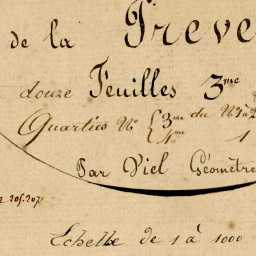 de la Treve
douze Feuilles 3me
Quartier No { 3me du No 1 à 2
4me 1
Par Viel Géomètre
205.207
Echelle de 1 à 1000